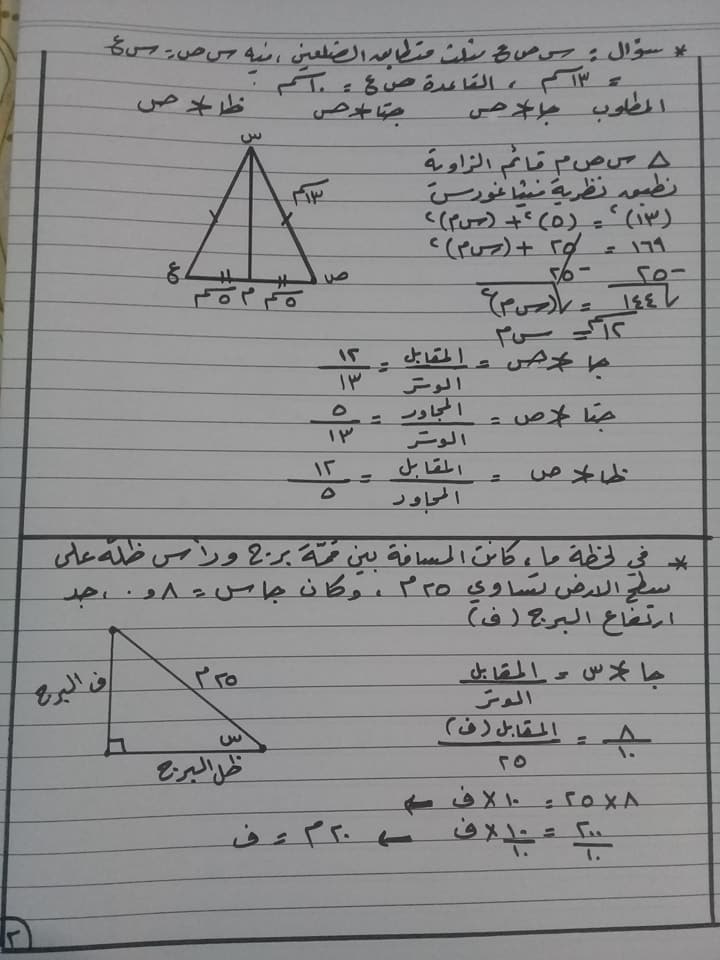 * سؤال : س ص ع مثلث متطابق الضلعين ، فيه س ص = س ع
= ١٣ سم ، القاعدة ص ع = ١٠ سم .
المطلوب جا∢ص جتا∢ص ظا∢ص
س
١٣ سم
ع
م
ص
٥ سم
٥ سم
△ س ص م قائم الزاوية
نطبق نظرية فيثاغورس
(١٣)² = (٥)² + (س م)²
١٦٩ = ٢٥ + (س م)²
-٢٥ -٢٥
√١٤٤ = √(س م)²
١٢ سم = س م
جا∢ص = المقابل / الوتر = ١٢ / ١٣
جتا∢ص = المجاور / الوتر = ٥ / ١٣
ظا∢ص = المقابل / المجاور = ١٢ / ٥
* في لحظة ما ، كانت المسافة بين قمّة برج ورأس ظلّه على
سطح الارض تساوي ٢٥ م ، وكان جا س = ٠,٨ ، جد
ارتفاع البرج (ف)
ف البرج
٢٥ م
س
ظل البرج
جا∢س = المقابل / الوتر
٨ / ١٠ = المقابل (ف) / ٢٥
٨ × ٢٥ = ١٠ × ف ←
٢٠٠ / ١٠ = ١٠ / ١٠ × ف ← ٢٠ م = ف
٢